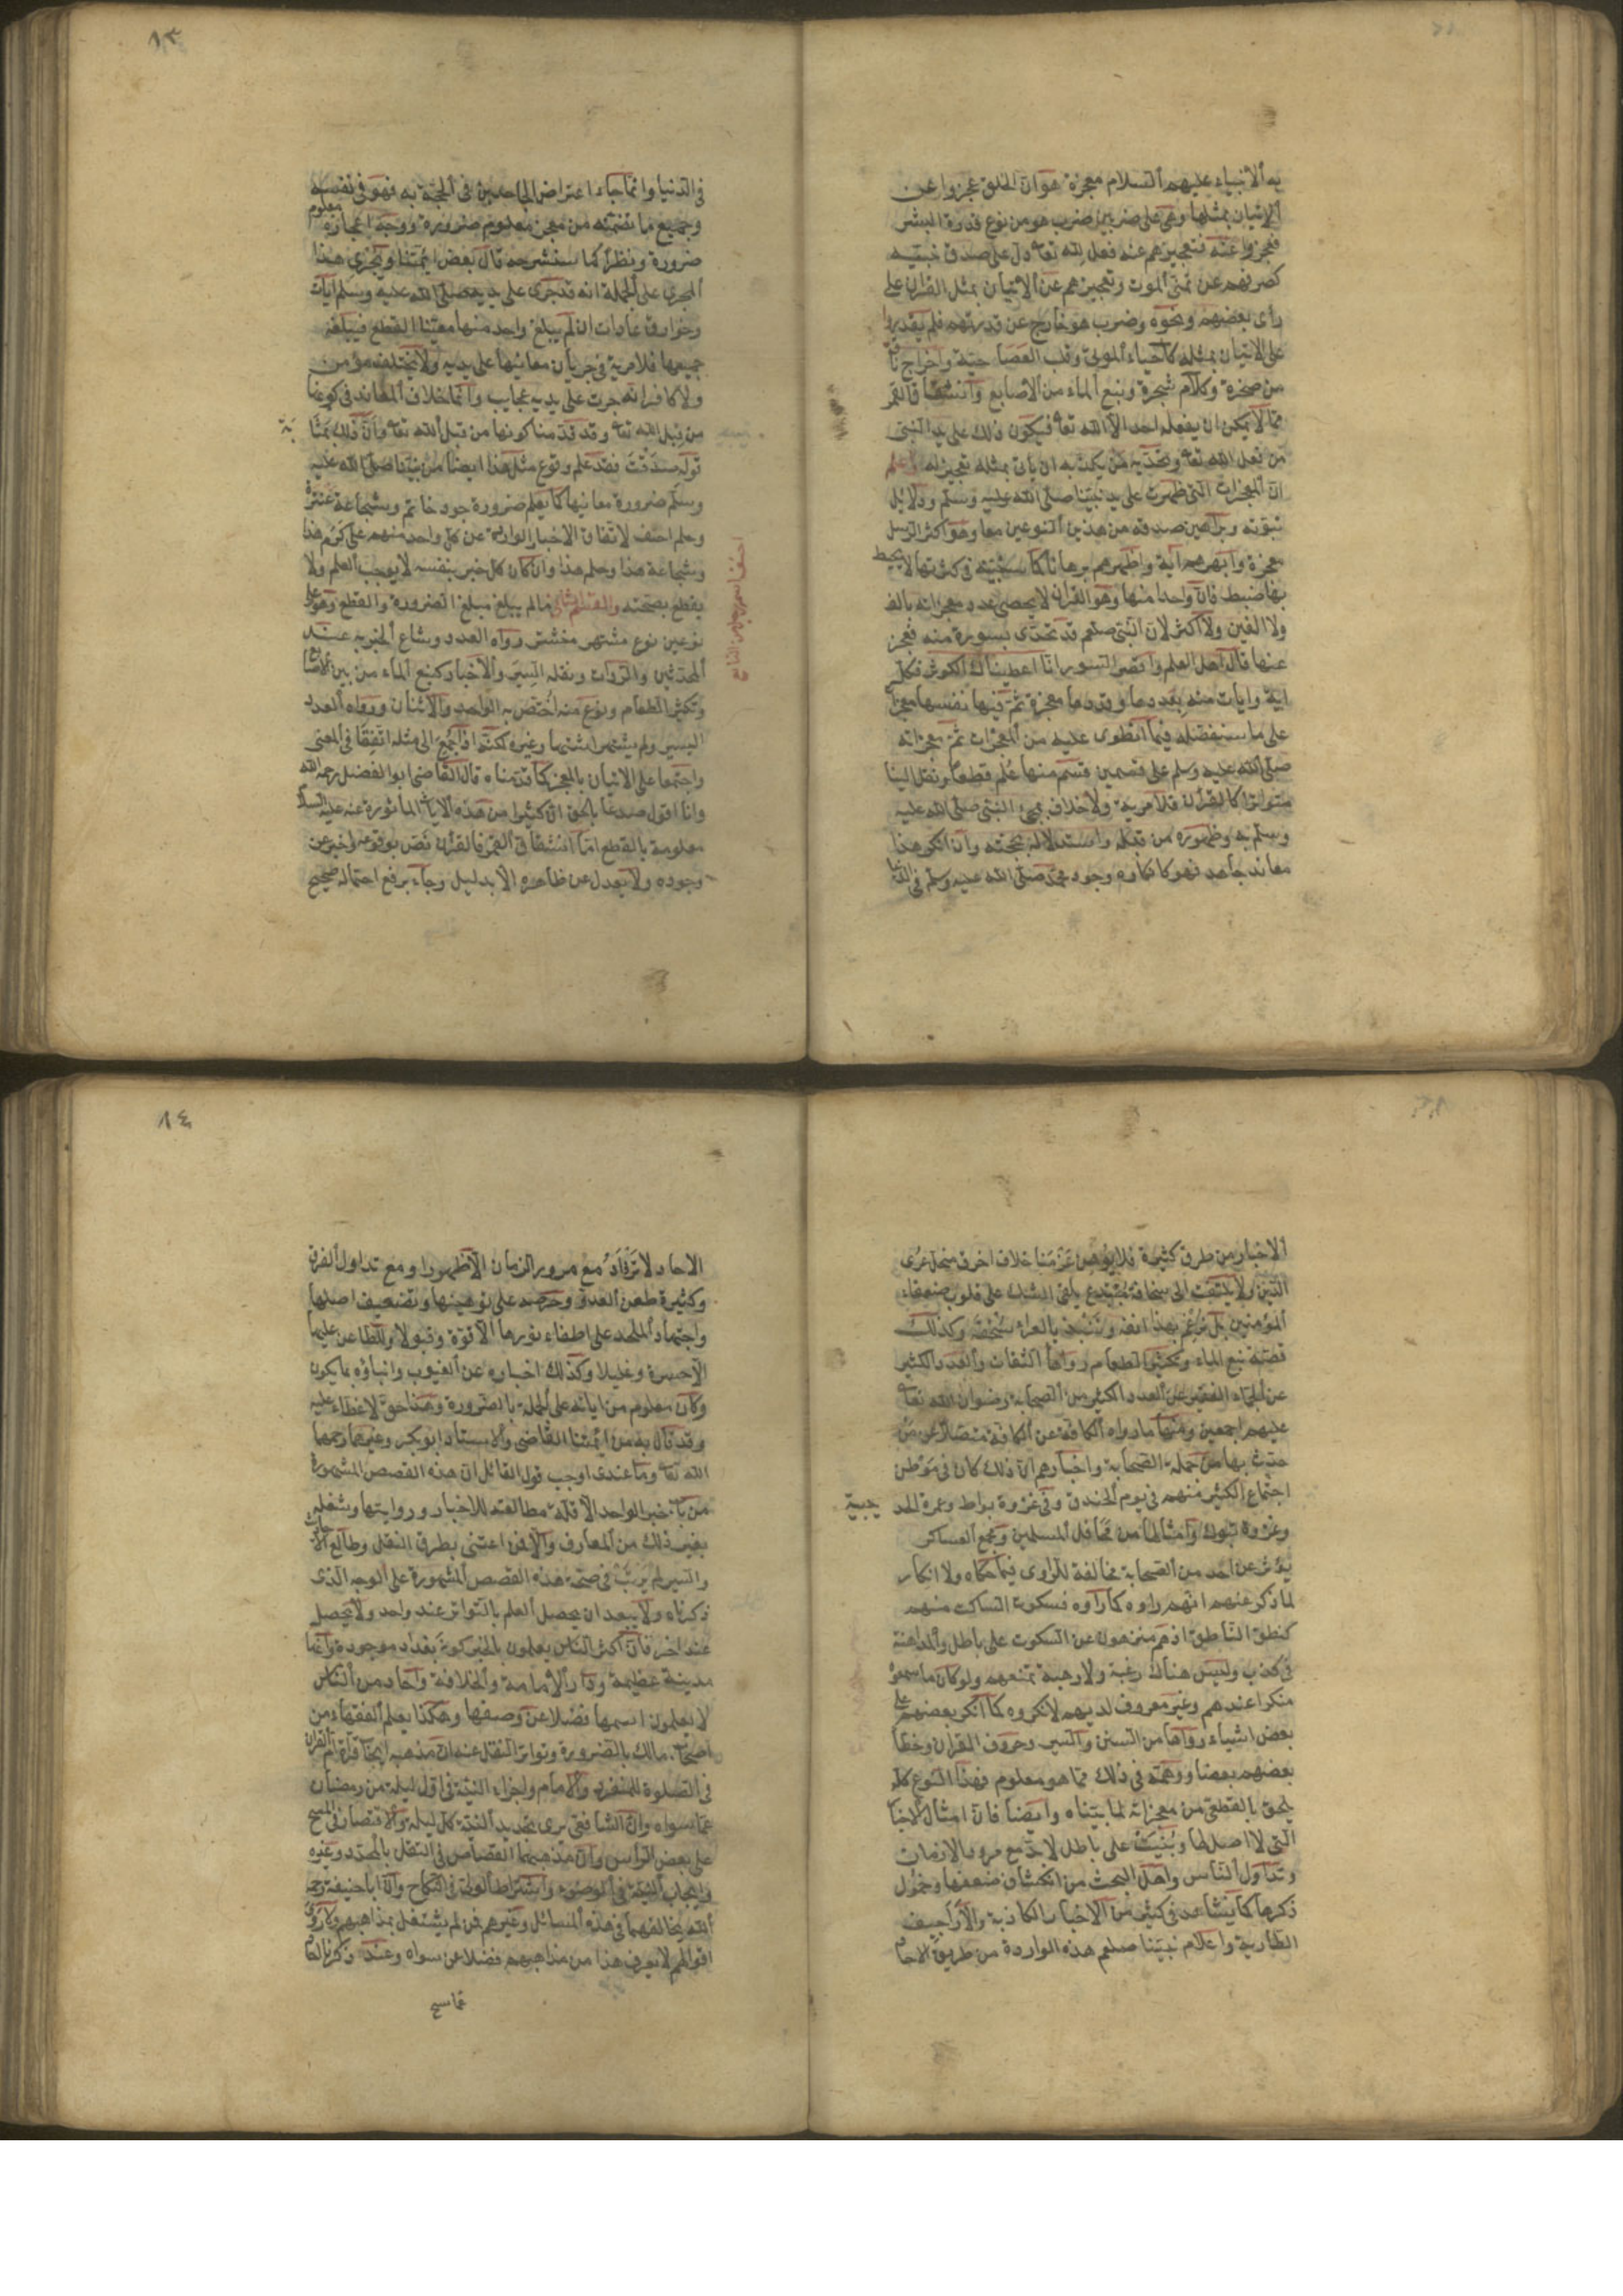 به الأنبياء عليهم السلام معجزة هو ان الخلق عجزوا عن
الإتيان بمثلها وهي على ضربين ضرب هو من نوع قدرة البشر
فعجزوا عنه فتعجيزهم عنه فعل لله تعا دل على صدق نبيه
كصرفهم عن تمني الموت وتعجيزهم عن الاتيان بمثل القران على
رأى بعضهم ونحوه وضرب هو خارج عن قدرتهم فلم يقدروا
على الاتيان بمثله كأحياء الموتى وقلب العصا حية واخراج ناقة
من صخرة وكلام شجرة ونبع الماء من الأصابع وانشقاق القمر
مما لا يمكن ان يفعله احد الا الله تعا فيكون ذلك على يد النبي
من فعل الله تعا وتحديه من يكذبه ان يأتى بمثله تعجيز له واعلم
ان المعجزات التي ظهرت على يد نبينا صلى الله عليه وسلم ودلايل
نبوته وبراهين صدقه من هذين النوعين معا وهو اكثر الرسل
معجزة وابهرهم آية واظهرهم برهانا كما سنبينه في كثرتها لا يحيط
بها ضبط فان واحدا منها وهو القران لا يحصى عدد معجزاته بألف
ولا الفين ولا اكثر لان النبي صلعم قد تحدى بسورة منه فعجز
عنها قال اهل العلم واقصر السور انا اعطيناك الكوثر فكل
اية وايات منه بعددها وقدرها معجزة ثم فيها نفسها معجزات
على ما سنفصله فيما انطوى عليه من المعجزات ثم معجزاته
صلى الله عليه وسلم على قسمين قسم منها علم قطعا ونقل الينا
متواترا كالقرآن فلا مرية ولا خلاف بمجئ النبي صلى الله عليه
وسلم به وظهوره من قبله واستدلاله بحجته وان انكر هذا
معاند جاحد فهو كانكاره وجود محمد صلى الله عليه وسلم في الدنيا
١٣
في الدنيا وانما جاء اعتراض الجاحدين في الحجة به فهو في نفسه
وجميع ما تضمنه من معجز معلوم ضرورة ووجه اعجازه معلوم
ضرورة ونظرا كما سنشرحه قال بعض ائمتنا ويجرى هذا
المجرى على الجملة انه قد جرى على يديه صلى الله عليه وسلم آيات
وخوارق عادات ان لم يبلغ واحد منها معينا القطع فيبلغه
جميعها فلا مرية في جريان معانيها على يديه ولا يختلف مؤمن
ولا كافر انه جرت على يديه عجايب وانما خلاف المعاند في كونها
من قبل الله تعا وقد قدمنا كونها من قبل الله تعا وان ذلك بمثابة
قوله صدقت فقد علم وقوع مثل هذا ايضا من نبينا صلى الله عليه
وسلم ضرورة معانيها كما يعلم ضرورة جود حاتم وشجاعة عنترة
وحلم احنف لاتفاق الاخبار الواردة عن كل واحد منهم على كرم هذا
وشجاعة هذا وحلم هذا وان كان كل خبر بنفسه لا يوجب العلم ولا
يقطع بصحته والقسم الثاني ما لم يبلغ مبلغ الضرورة والقطع وهو على
نوعين نوع مشتهر منتشر رواه العدد وشاع الخبر به عند
المحدثين والرواة ونقلة السير والاخبار كنبع الماء من بين الأصابع
وتكثير الطعام ونوع منه اختص به الواحد والاثنان ورواه العدد
اليسير ولم يشتهر اشتهار غيره لكنه اذا جمع الى مثله اتفقا في المعنى
واجتمعا على الاتيان بالمعجز كما قدمناه قال القاضي ابو الفضل رحمه الله
وانا اقول صدعا بالحق ان كثيرا من هذه الآيات المأثورة عنه عليه السلام
معلومة بالقطع اما انشقاق القمر فالقرآن نص بوقوعه واخبر عن
وجوده ولا يعدل عن ظاهره الا بدليل وجاء برفع احتماله صحيح
الاخبار من طرق كثيرة فلا يوهن عزمنا خلاف اخرق منحل عرى
الدين ولا يلتفت الى سخافة مبتدع يلقى الشك على قلوب ضعفاء
المؤمنين بل نرغم بهذا انفه وننبذ بالعراء سخفه وكذلك
قصة نبع الماء وتكثير الطعام رواها الثقات والعدد الكثير
عن الجماء الغفير عن العدد الكثير من الصحابة رضوان الله تعا
عليهم اجمعين ومنها ما رواه الكافة عن الكافة متصلا عن من
حدث بها من جملة الصحابة واخبارهم ان ذلك كان في موطن
اجتماع الكثير منهم في يوم الخندق وفى غزوة بواط وعمرة الحديبية
وغزوة تبوك وامثالها من محافل المسلمين ومجمع العساكر
يؤثر عن احد من الصحابة مخالفة للراوى فيما حكاه ولا انكار
لما ذكر عنهم انهم راوه كما رآوه فسكوت الساكت منهم
كنطق الناطق اذ هم منزهون عن السكوت على باطل والمداهنة
في كذب وليس هناك رغبة ولا رهبة تمنعهم ولو كان ما سمعوه
منكرا عندهم وغير معروف لديهم لانكروه كما انكر بعضهم على
بعض اشياء رواها من السنن والسير وحروف القران وخطأ
بعضهم بعضا ووهمه في ذلك مما هو معلوم فهذا النوع كله
يلحق بالقطعى من معجزاته لما بيناه وايضا فان امثال الاخبار
التي لا اصل لها وبنيت على باطل لا بد مع مرور الازمان
وتداول الناس واهل البحث من انكشاف ضعفها وخمول
ذكرها كما يشاهد في كثير من الاخبار الكاذبة والاراجيف
الطارية واعلام نبينا صلعم هذه الواردة من طريق الاحاد
١٤
الاحاد لا تزداد مع مرور الزمان الا ظهورا ومع تداول الفرق
وكثرة طعن العدو وحرصه على توهينها وتضعيف اصلها
واجتهاد الملحد على اطفاء نورها الا قوة وقبولا وللطاعن عليها
الا حسرة وغليلا وكذلك اخباره عن الغيوب وانباؤه بما يكون
وكان معلوم من اياته على الجملة بالضرورة وهذا حق لا غطاء عليه
وقد قال به من ائمتنا القاضى والاستاد ابو بكر وغيرهما رحمهما
الله تعا وما عندى اوجب قول القائل ان هذه القصص المشهورة
من باب خبر الواحد الا قلة مطالعته للاخبار وروايتها وشغله
بغير ذلك من المعارف والا فمن اعتنى بطرق النقل وطالع الاحاديث
والسير لم يرتب في صحة هذه القصص المشهورة على الوجه الذى
ذكرناه ولا يبعد ان يحصل العلم بالتواتر عند واحد ولا يحصل
عند اخر فان اكثر الناس يعلمون بالخبر كون بغداد موجودة وانها
مدينة عظيمة ودار الامامة والخلافة واحاد من الناس
لا يعلمون اسمها فضلا عن وصفها وهكذا يعلم الفقهاء من
اصحاب مالك بالضرورة وتواتر النقل عنه ان مذهبه ايجاب قراءة ام القران
في الصلوة للمنفرد والامام واجزاء النية في اول ليلة من رمضان
عما سواه وان الشافعي يرى تجديد النية كل ليلة والاقتصار في المسح
على بعض الراس وان مذهبهما القصاص في القتل بالمحدد وغيره
وايجاب النية في الوضوء واشتراط الولى في النكاح وان ابا حنيفة رحمه
الله يخالفهما في هذه المسائل وغيرهم فمن لم يشتغل بمذاهبهم ولا روى
اقوالهم لا يعرف هذا من مذاهبهم فضلا عن سواه وعند ذكرنا احاد